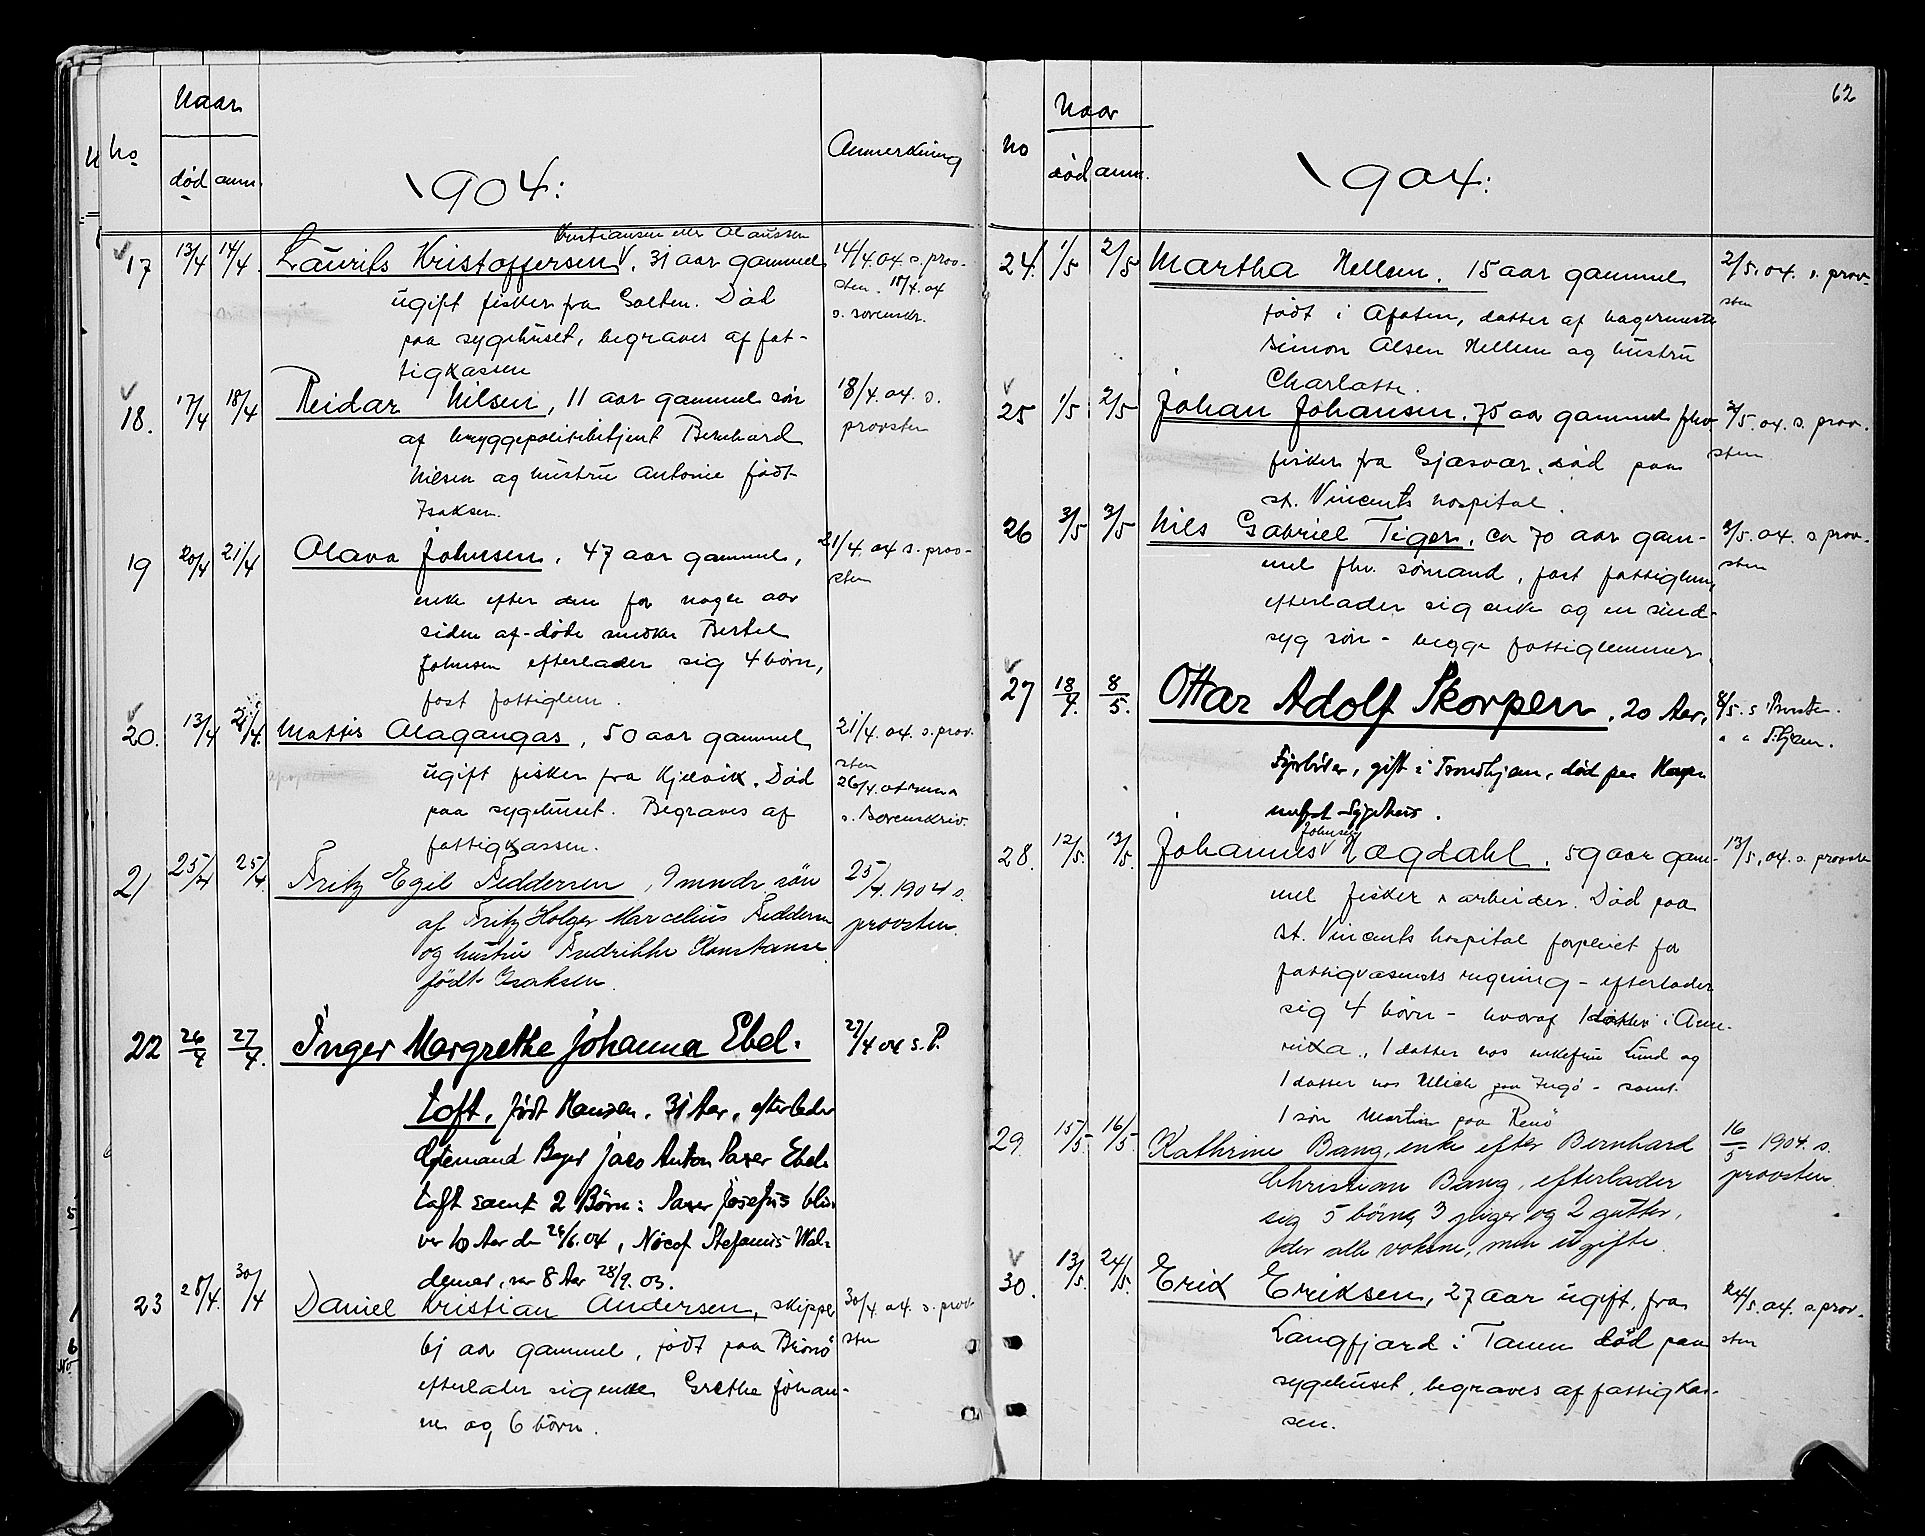 Naar
No
død anm.
1904:
Anmerkning
Kristiansen eller Olaussen
17 13/4 14/4 Laurits Kristoffersen V. 31 aar gammel 14/4.04. s. prov-
ugift fisker fra Salten. Død sten. 18/4.04
paa sygehuset, begraves af fat- s. sorenskr.
tigkassen
18. 17/4 18/4 Reidar Nilsen, 11 aar gammel søn 18/4.04. s.
af bryggepolitibetjent Bernhard provsten
Nilsen og hustru Antonie født
Isaksen.
19 20/4 21/4 Olava Johnsen, 47 aar gammel, 21/4.04 s. prov-
enke efter den for nogle aar sten
siden af-døde snedker Bertel
Johnsen efterlader sig 4 børn,
fast fattiglem.
20. 13/4 21/4 Mattis Olagangas, 50 aar gammel 21/4.04. s. prov.
ugift fisker fra Kjelvik. Død sten
paa sygehuset. Begraves af 26/4.04
fattigkassen. s. Sorenskriv.
21 25/4 25/4 Fritz Egil Feddersen, 9 mndr. søn 25/4 1904 s.
af Fritz Holger Marcelius Feddersen provsten.
og hustru Fredrikke Konstanse
født Isaksen.
22 26/4 27/4. Inger Margrethe Johanna Ebel- 27/4 04 s. P.
toft, født Hansen. 31 Aar, efterlader
Egtemand Bager Jaco Anton Paxer Ebel-
toft samt 2 Børn: Paxer Josefus bli-
ver 10 Aar den 26/6.04, Nocof Stefanus Wal-
demar, var 8 Aar 28/9.03.
23 28/4. 30/4 Daniel Kristian Andersen, skipper 30/4.04. s. prov-
61 aar gammel, født paa Brønø sten
efterlader sig enke Grethe Johan-
ne og 6 børn.
62
Naar
No
død anm.
1904:
24. 1/5 2/5 Martha Hellem. 15 aar gammel 2/5.04. s. prov-
født i Afoten, datter af bagermester sten
Simon Olsen Hellem og hustru
Charlotte.
25 1/5 2/5 Johan Johansen. 75 aar gammel fhv. 2/5.04. s. prov.
fisker fra Gjæsvær, død paa sten
st. Vincents hospital.
26 3/5 3/5 Nils Gabriel Tiger, ca 70 aar gam- 3/5.04. s. prov-
mel fhv. sømand, fast fattiglem, sten
efterlader sig enke og en sind-
syg søn - begge fattiglemmer.
27 18/4. 8/5. Ottar Adolf Skorpen. 20 Aar, 8/5. s Provsten.
Fyrbøder, gift i Trondhjem, død paa Hammer- " " Thjem.
fest Sygehus.
Johnsen
28. 12/5. 13/5. Johannes V Hagdahl. 59 aar gam- 13/5.04. s. provsten
mel fisker & arbeider. Død paa
st. Vincents hospital forpleiet for
fattigvæsenets regning - efterlader
sig 4 børn - hvoraf 1 datter i Ame-
rika., 1 datter hos enkefru Lund og
1 datter hos Ulich paa Ingø - samt
1 søn Martin paa Renø
29. 15/5. 16/5. Kathrine Bang, enke efter Bernhard 16/5 1904. s.
Christian Bang, efterlader provsten.
sig 5 børn, 3 piger og 2 gutter,
der alle voksne, men ugifte.
30. 13/5. 24/5. Erik Eriksen, 27 aar ugift, fra 24/5.04. s. prov-
Langfjord i Tanen død paa sten
sygehuset, begraves af fattigkas-
sen.